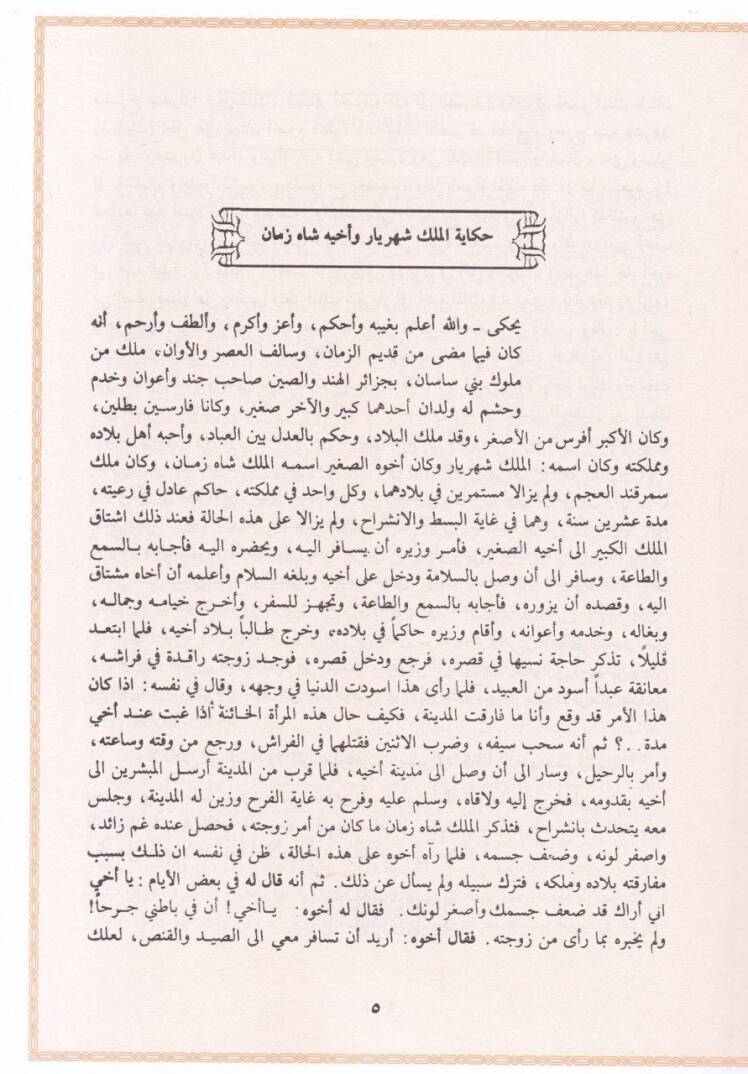 حكاية الملك شهريار وأخيه شاه زمان
يحكى ـ والله أعلم بغيبه وأحكم، وأعز وأكرم، وألطف وأرحم، أنه
كان فيما مضى من قديم الزمان، وسالف العصر والأوان، ملك من
ملوك بني ساسان، بجزائر الهند والصين صاحب جند وأعوان وخدم
وحشم له ولدان أحدهما كبير والآخر صغير، وكانا فارسين بطلين،
وكان الأكبر أفرس من الأصغر، وقد ملك البلاد، وحكم بالعدل بين العباد، وأحبه أهل بلاده
ومملكته وكان اسمه: الملك شهريار وكان أخوه الصغير اسمه الملك شاه زمان، وكان ملك
سمرقند العجم، ولم يزالا مستمرين في بلادهما، وكل واحد في مملكته، حاكم عادل في رعيته،
مدة عشرين سنة، وهما في غاية البسط والانشراح، ولم يزالا على هذه الحالة فعند ذلك اشتاق
الملك الكبير الى أخيه الصغير، فأمر وزيره أن يسافر اليه، ويحضره اليه فأجابه بالسمع
والطاعة، وسافر الى أن وصل بالسلامة ودخل على أخيه وبلغه السلام وأعلمه أن أخاه مشتاق
اليه، وقصده أن يزوره، فأجابه بالسمع والطاعة، وتجهز للسفر، وأخرج خيامه وجماله،
وبغاله، وخدمه وأعوانه، وأقام وزيره حاكماً في بلاده، وخرج طالباً بلاد أخيه، فلما ابتعد
قليلًا، تذكر حاجة نسيها في قصره، فرجع ودخل قصره، فوجد زوجته راقدة في فراشه،
معانقة عبداً أسود من العبيد، فلما رأى هذا اسودت الدنيا في وجهه، وقال في نفسه: اذا كان
هذا الأمر قد وقع وأنا ما فارقت المدينة، فكيف حال هذه المرأة الخائنة أذا غبت عند أخي
مدة ..؟ ثم أنه سحب سيفه، وضرب الاثنين فقتلهما في الفراش، ورجع من وقته وساعته،
وأمر بالرحيل، وسار الى أن وصل الى مدينة أخيه، فلما قرب من المدينة أرسل المبشرين الى
أخيه بقدومه، فخرج إليه ولاقاه، وسلم عليه وفرح به غاية الفرح وزين له المدينة، وجلس
معه يتحدث بانشراح، فتذكر الملك شاه زمان ما كان من أمر زوجته، فحصل عنده غم زائد،
واصفر لونه، وضعف جسمه، فلما رآه أخوه على هذه الحالة، ظن في نفسه ان ذلك بسبب
مفارقته بلاده وملكه، فترك سبيله ولم يسأل عن ذلك. ثم أنه قال له في بعض الأيام: يا أخي
اني أراك قد ضعف جسمك وأصغر لونك. فقال له أخوه: يا أخي! أن في باطني جرحاً!
ولم يخبره بما رأى من زوجته. فقال أخوه: أريد أن تسافر معي الى الصيد والقنص، لعلك
٥